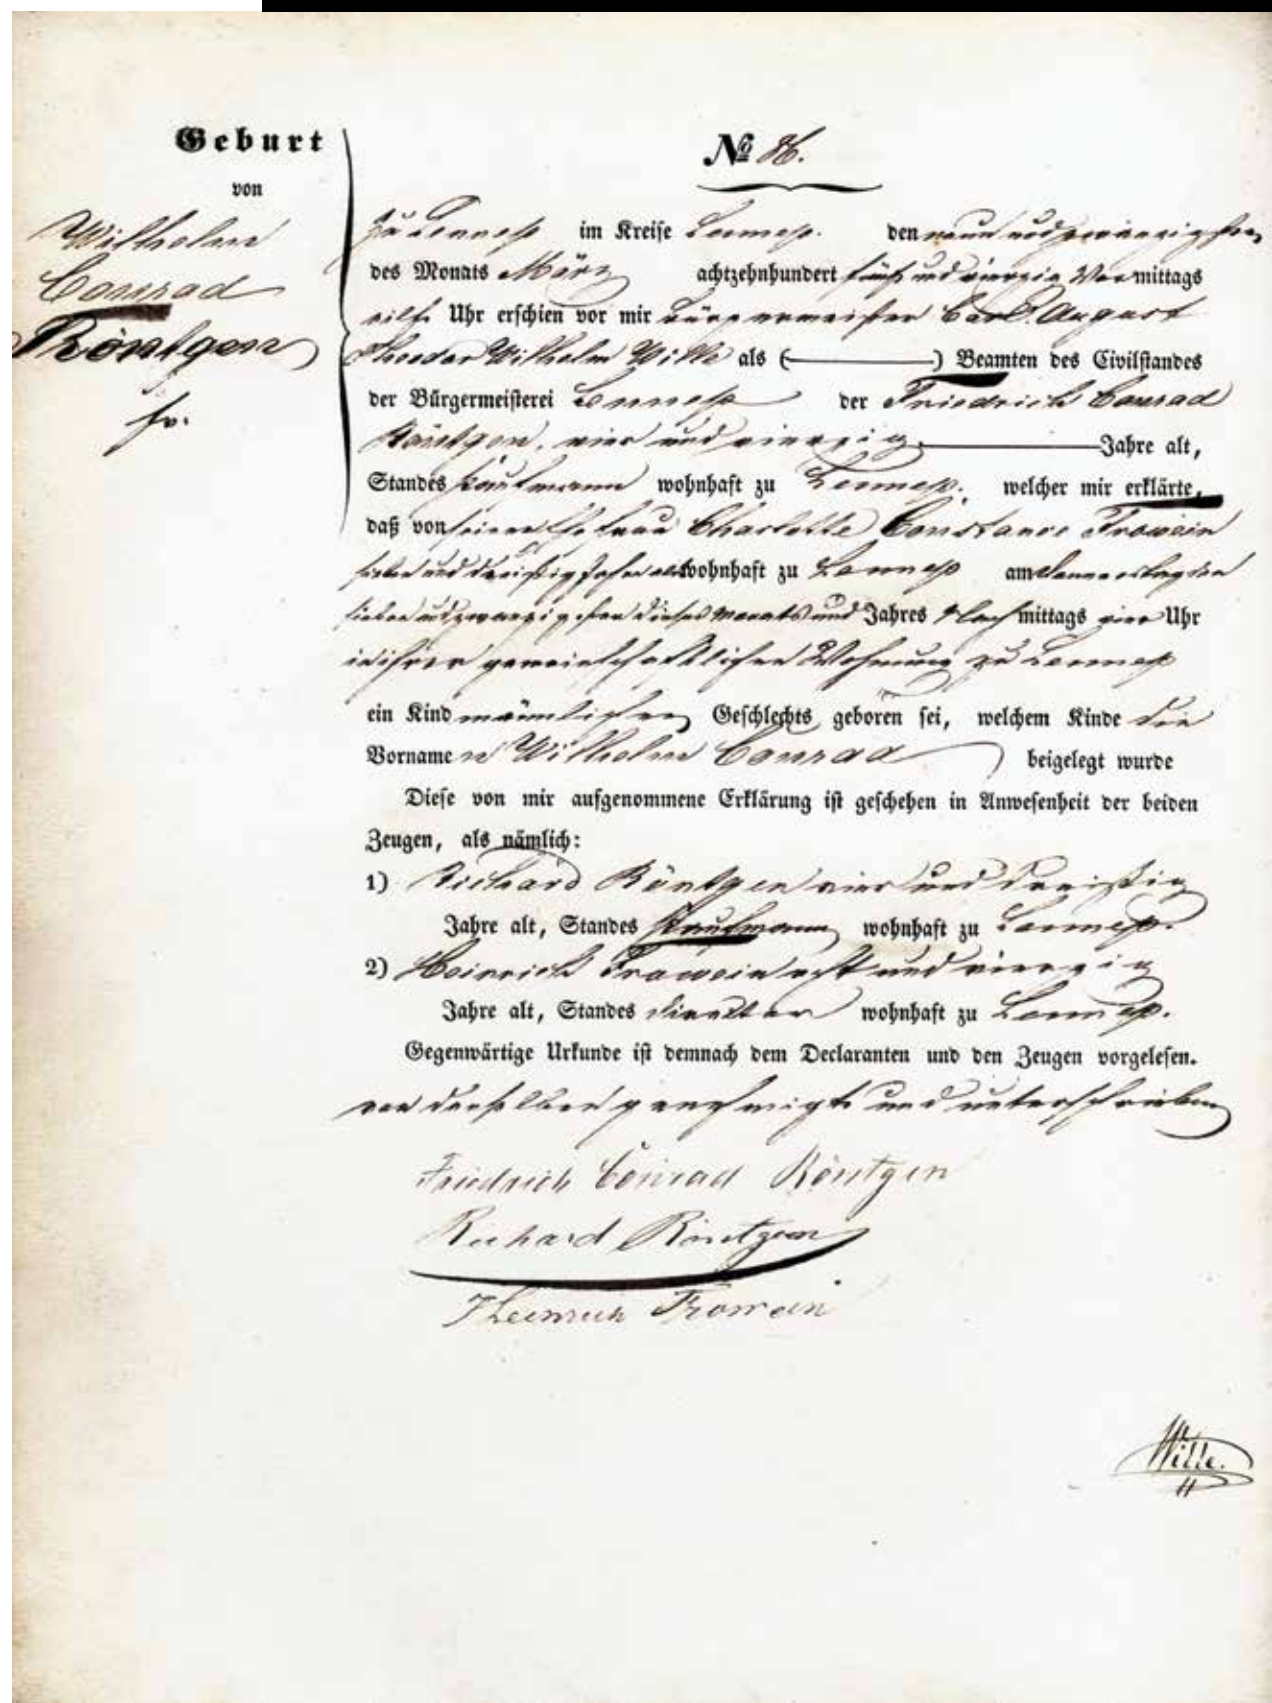 Geburt
von
Wilhelm
Conrad
Röntgen
№ 86.
Zu Lennep im Kreise Lennep. den neun und zwanzigsten
des Monats März achtzehnhundert fünf und vierzig Vormittags
eilf Uhr erschien vor mir Bürgermeister Carl August
Theodor Wilhelm Wille als ( ) Beamten des Civilstandes
der Bürgermeisterei Lennep der Friedrich Conrad
Röntgen, vier und vierzig Jahre alt,
Standes Kaufmann wohnhaft zu Lennep. welcher mir erklärte,
daß von seiner Ehefrau Charlotte Constance Frowein
sieben und dreißig Jahre alt wohnhaft zu Lennep am Donnerstag den
sieben und zwanzigsten dieses Monats und Jahres Nachmittags vier Uhr
in ihrer gemeinschaftlichen Wohnung zu Lennep
ein Kind männlichen Geschlechts geboren sei, welchem Kinde die
Vornamen Wilhelm Conrad beigelegt wurde
Diese von mir aufgenommene Erklärung ist geschehen in Anwesenheit der beiden
Zeugen, als nämlich:
1) Richard Röntgen vier und dreißig
Jahre alt, Standes Kaufmann wohnhaft zu Lennep.
2) Heinrich Frowein acht und vierzig
Jahre alt, Standes wohnhaft zu Lennep.
Gegenwärtige Urkunde ist demnach dem Declaranten und den Zeugen vorgelesen.
von denselben genehmigt und unterschrieben
Friedrich Conrad Röntgen
Richard Röntgen
Heinrich Frowein
Wille.